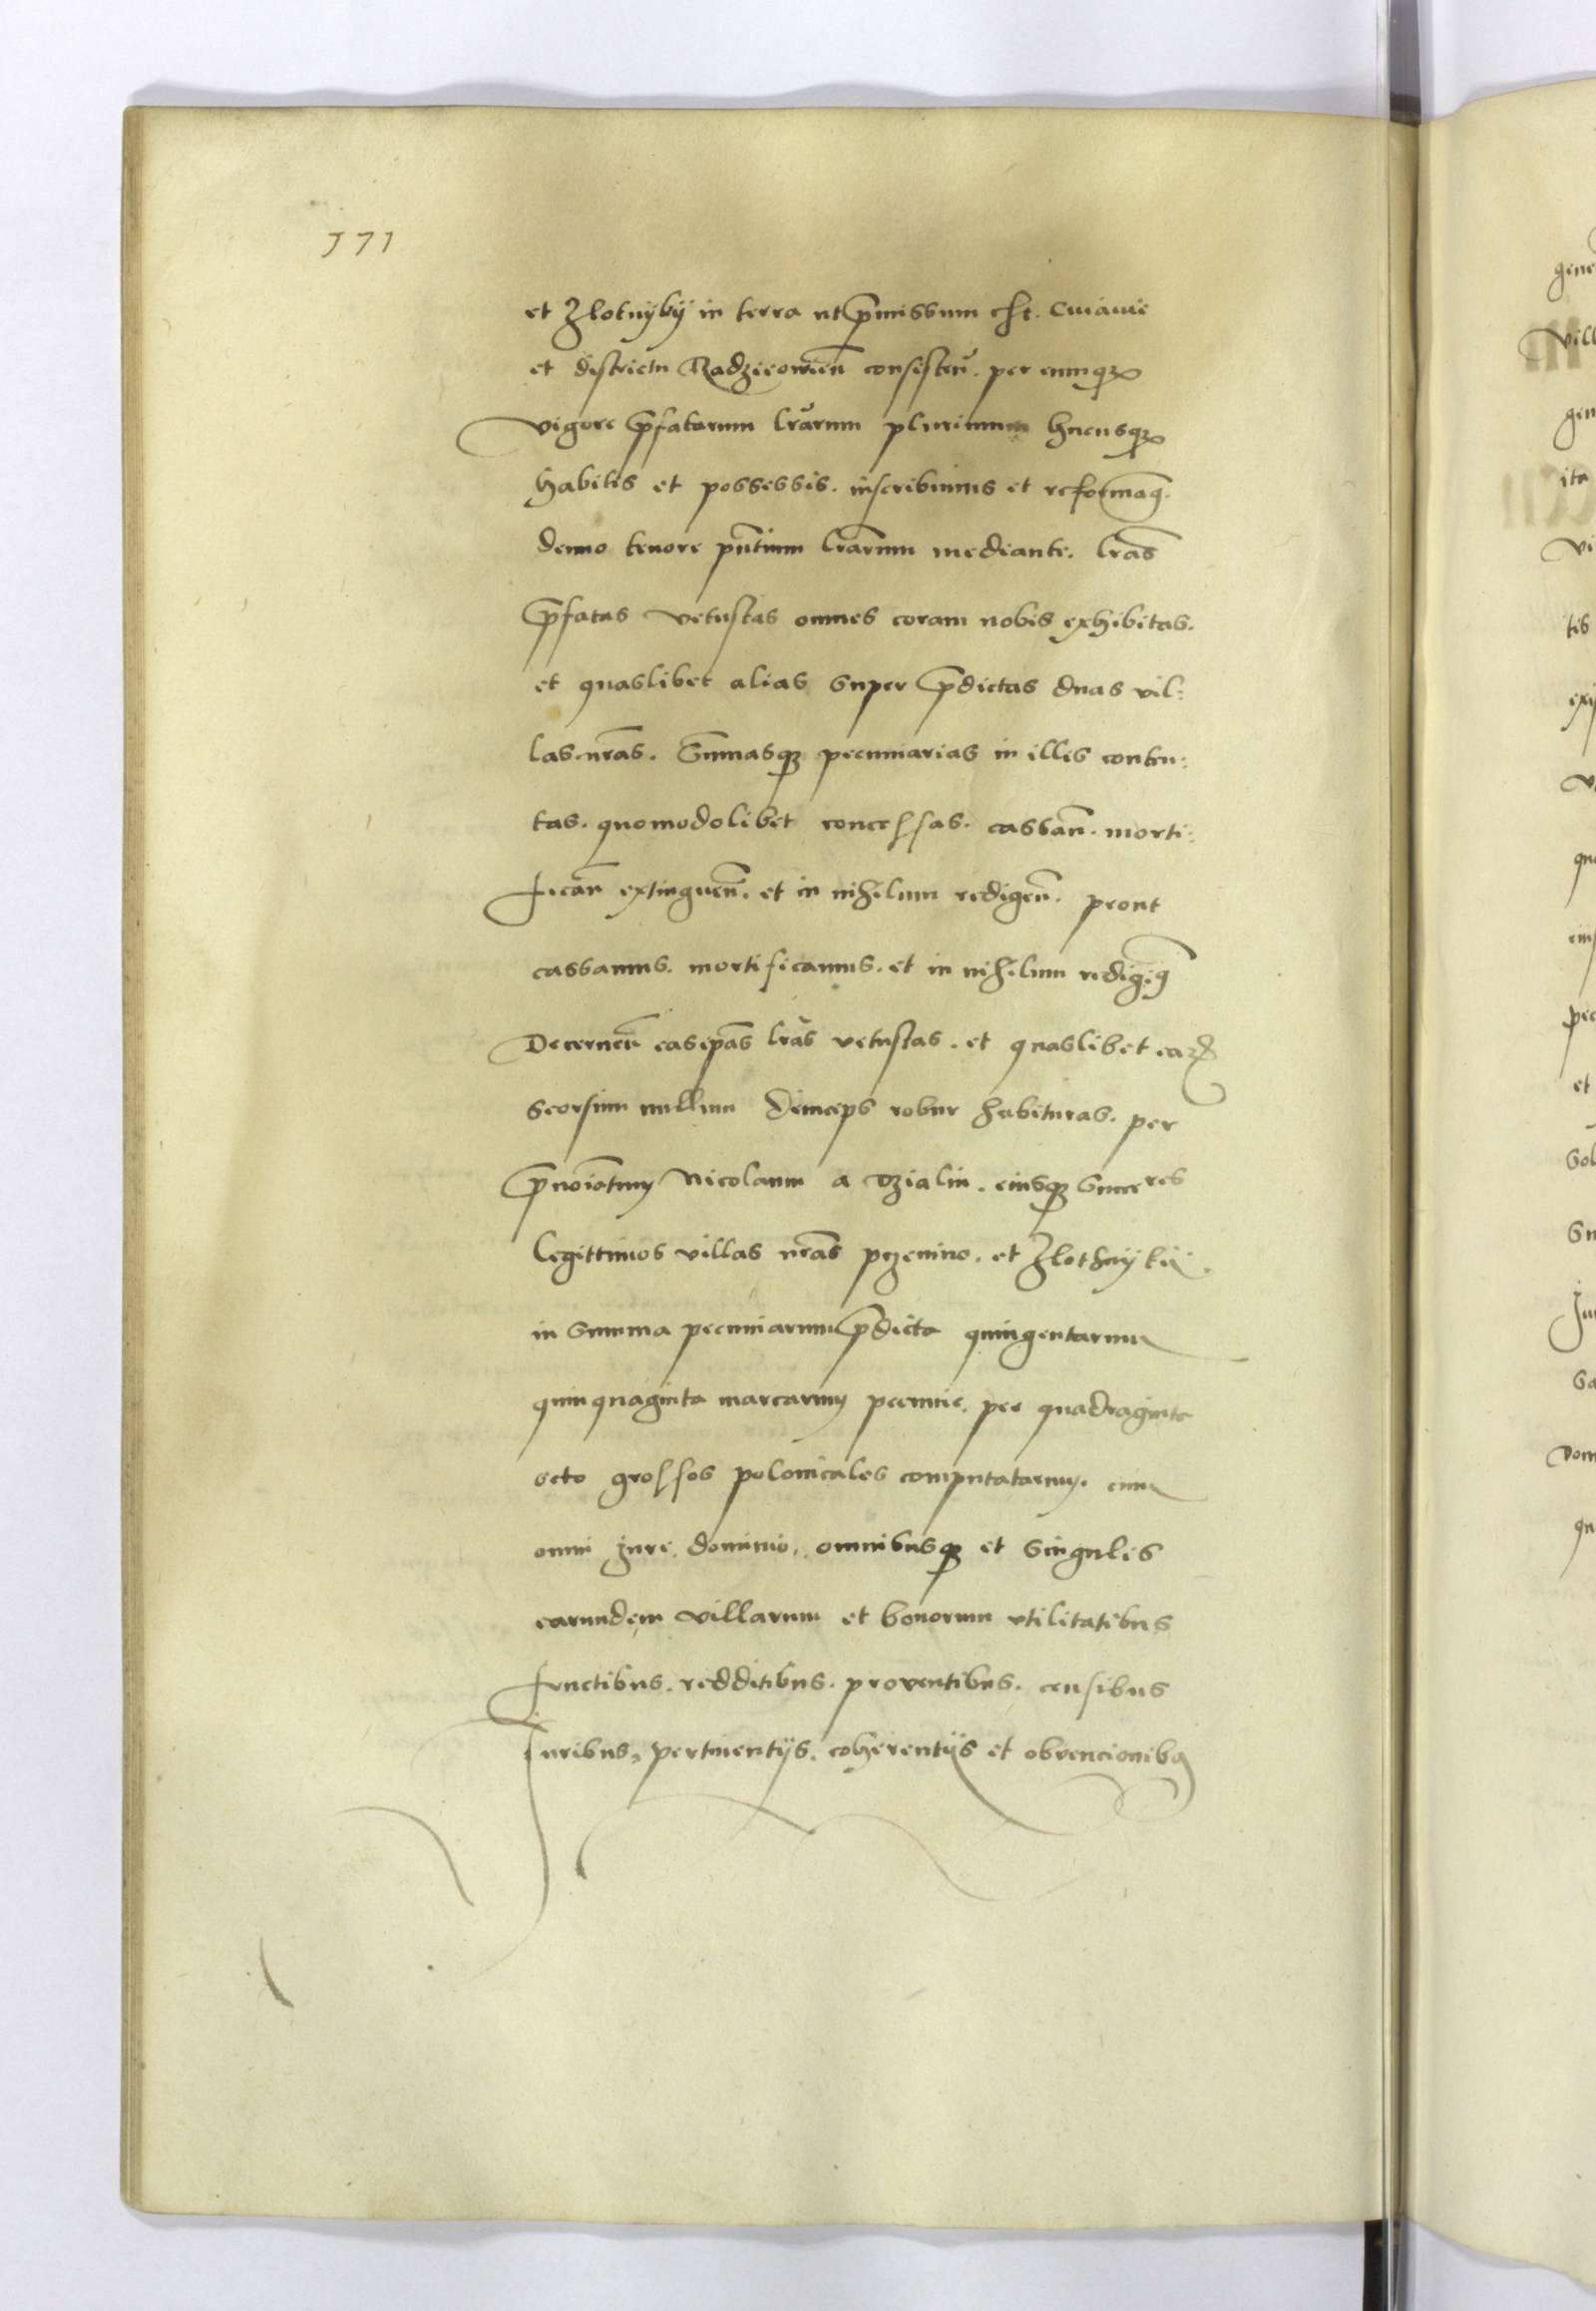 171
et Zlotnyky in terra ut p̃missum est. Cuiauie
et districtu Radzieowien̄ consisten̄. per eumq3
vigore p̃fatarum lr̃arum plurimum hucusq3
habitis et possessis. inscribimus et reformam9.
denuo tenore pñtium lr̃arum mediante. lr̃as
p̃fatas vetustas omnes coram nobis exhibitas.
et quaslibet alias super p̃dictas duas vil=
las nr̃as. Sum̃masq3 pecuniarias in illis conten=
tas. quomodolibet concessas. cassan̄. morti=
fican̄ extinguen̄. et in nihilum redigen̄. prout
cassamus. mortificamus. et in nihilum redigim9
Decernen̄ eas ip̃as lr̃as vetustas. et quaslibet earūd
seorsim nullum deinceps robur habituras. per
p̃noiatum Nicolaum a Dzialin. eiusq3 Succeres
legittimos villas nr̃as pczenino. et Zlothnykii.
in Summa pecuniarum p̃dicta quingentarum
quinquaginta marcarum pecunie. per quadraginta
octo grossos polonicales computatarum. cum
omni Jure. dominio. omnibusq3 et Singulis
earundem villarum et bonorum vtilitatibus
fructibus. redditibus. proventibus. censibus
Juribus, pertinentijs. coherentijs et obvencionib9